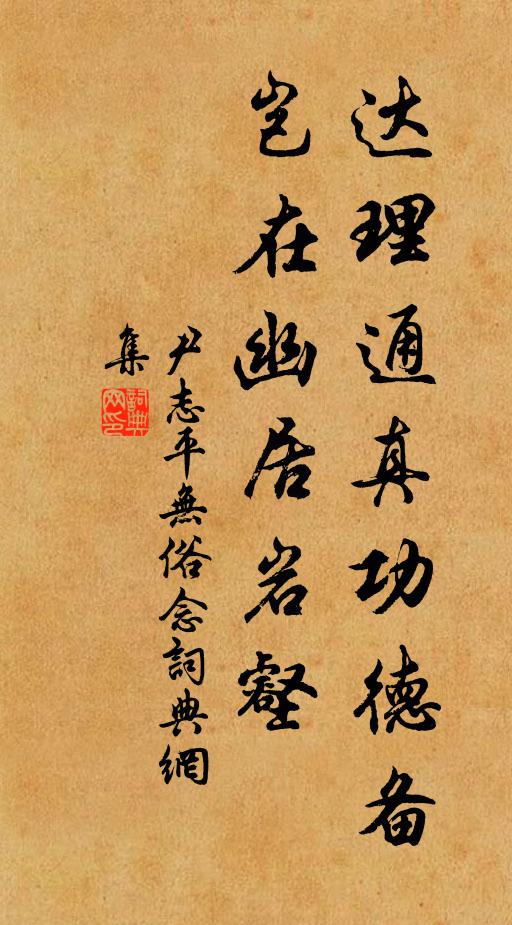 达理通真功德备
岂在幽居岩壑
尹志平無俗念詞典網
集
詞典網印